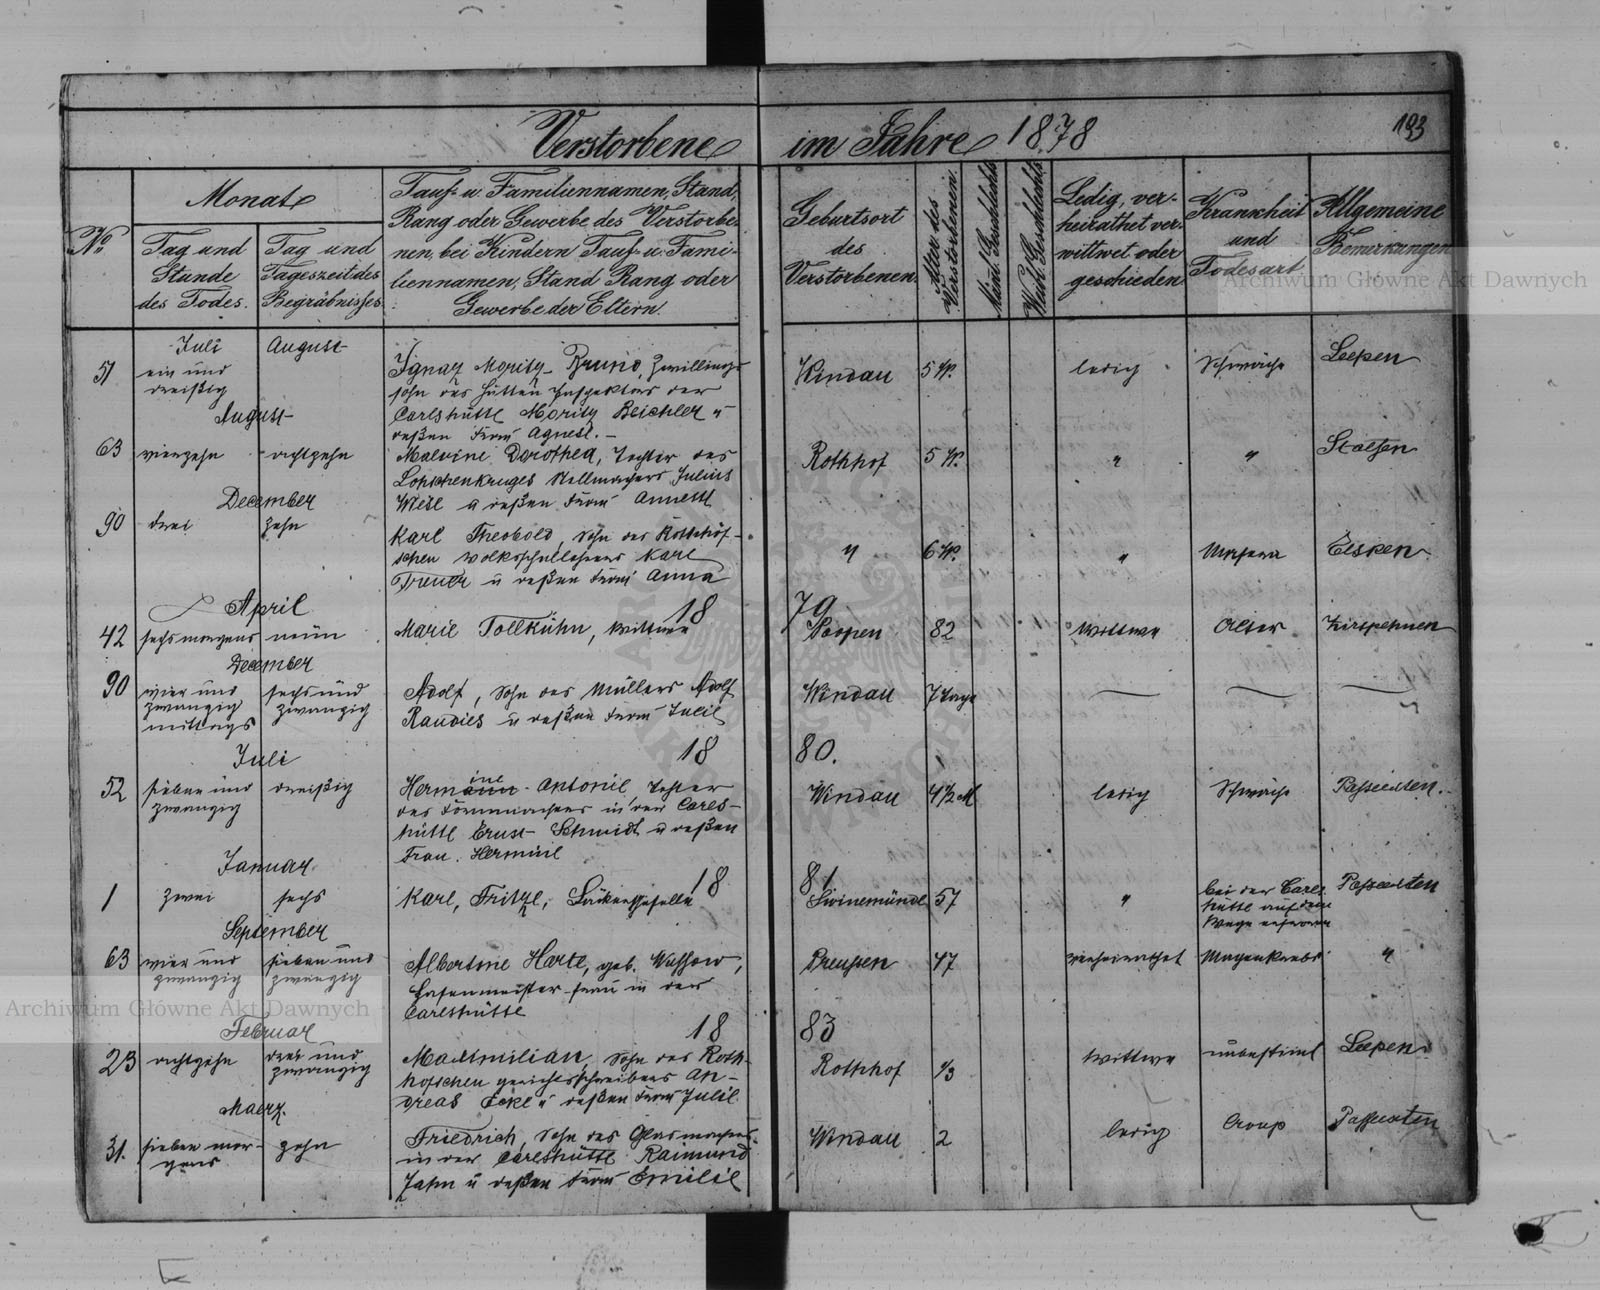 Verstorbene im Jahre 1878
193
No
Monat
Tag und Stunde des Todes.
Tag und Tageszeit des Begräbnisses
Tauf- u Familiennamen, Stand,
Rang oder Gewerbe des Verstorbe-
nen, bei Kindern Tauf- u. Fami-
liennamen, Stand Rang oder
Gewerbe der Eltern.
Geburtsort des Verstorbenen.
Alter des Verstorbenen
Männl. Geschlechts
Weibl. Geschlechts
Ledig, ver-
heirathet ver-
wittwet oder
geschieden
Krankheit und Todesart
Allgemeine Bemerkungen
Archiwum Główne Akt Dawnych
Juli August
51 ein und dreißig
Ignaz Moritz Bruno, Zwillings-
sohn des Hütten Inspektors der
Carlshütte Moritz Beichler u
deßen Frau Agnes.
Windau 5 W. ledig Schwäche Leepen
August
63 vierzehn achtzehn
Malvine Dorothea, Tochter des
Stellmachers Julius
u deßen Frau Annette
Rothhof 5 W. " " Stalsen
December
90 drei zehn
Karl Theobold, Sohn des Rothhöf-
schen Volksschullehrers Karl
u deßen Frau Anna
" 6 W. " Masern Elsken
1879
April
42 sechs morgens neun
Marie Tollkühn, Wittwe
82 Wittwe Alter Kirspehnen
December
90 vier und zwanzig mittags
sechs und zwanzig
Adolf, Sohn des Müllers Adolf
Raudies u deßen Frau Julie
Windau 7 Tage
1880.
Juli
52 sieben und zwanzig
dreißig
Hermine Antonie, Tochter
des Formmachers in der Carls-
hütte Ernst Schmidt u deßen
Frau Hermine
Windau 4½ M ledig Schwäche Passexten
1881
Januar
1 zwei sechs
Karl, Fritze, Bäckergeselle
Swinemünde 57 " bei der Carls-
hütte auf dem
Wege erfroren
Passexten
September
63 vier und zwanzig
sieben und zwanzig
Albertine Harte, geb. Wussow,
Hafenmeister frau in der
Carlshütte
Preussen 47 verheirathet Magenkrebs "
Archiwum Główne Akt Dawnych
1883
Februar
23 achtzehn drei und zwanzig
Maximilian, Sohn des Roth-
hofschen gerichtsschreibers An-
dreas u deßen Frau Julie
Rothhof 1/3 Wittwe unbestimt Leepen
Maerz.
31. sieben mor-
gens
zehn
Friedrich, Sohn des Glasmachers
in der Carlshütte Raimund
Jahn u deßen Frau Emilie
Windau 2 ledig Croup Passexten